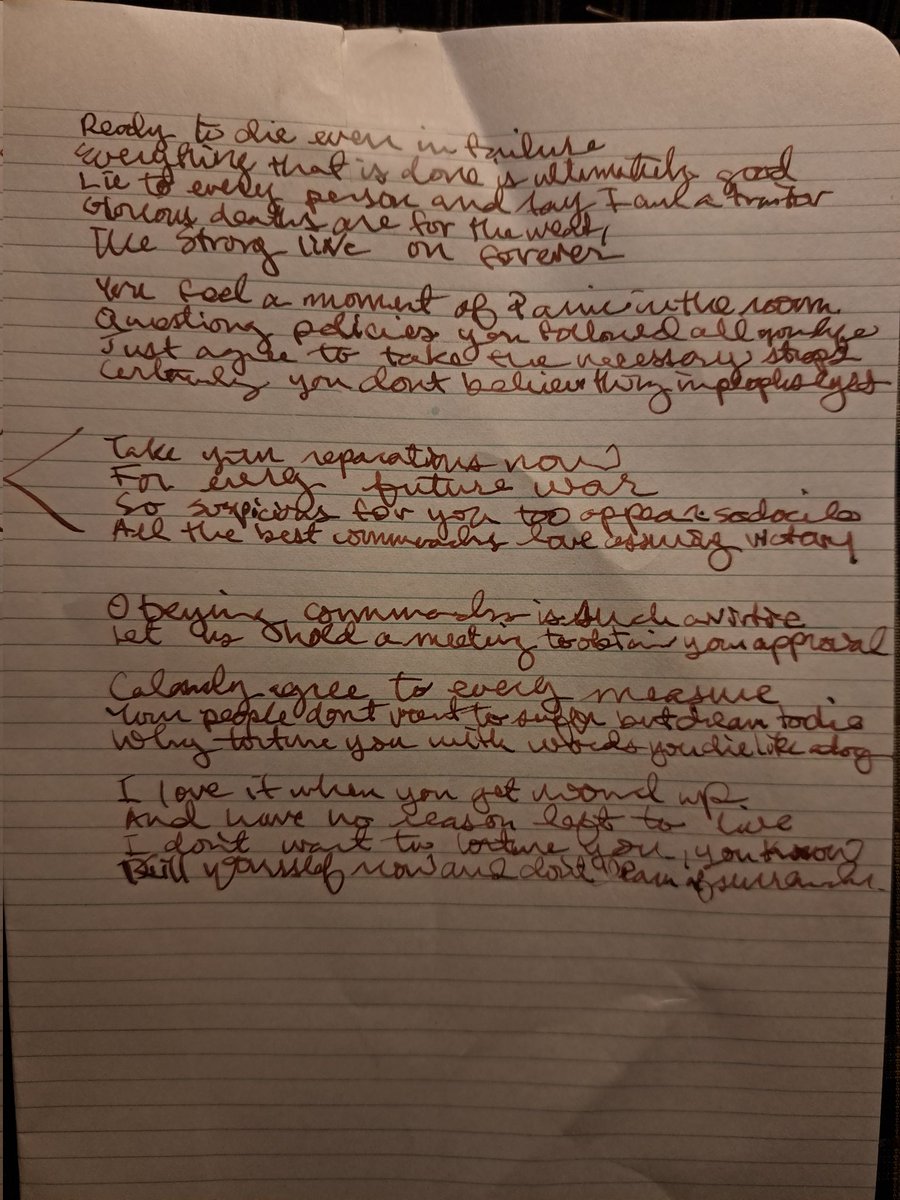 Ready to die even in failure
Everything that is done is ultimately good
Lie to every person and say I am a traitor
Glorious deaths are for the weak,
The strong live on forever
You feel a moment of panic in the room
Questiong policies you followed all your life
Just agree to take the necessary steps
Certainly you dont believe thing in peoples eyes
Take your reparations now
For every future war
So suspicious for you too appear so docile
All the best commands love assuring victory
Obeying commands is such a virtue
Let us hold a meeting to obtain your approval
Calmly agree to every measure
Your people don't want to suffer but dream to die
Why torture you with words you die like a dog
I love it when you get wound up
And have no reason left to live
I don't want to torture you, you know
yourself now and don't dream of surrender.